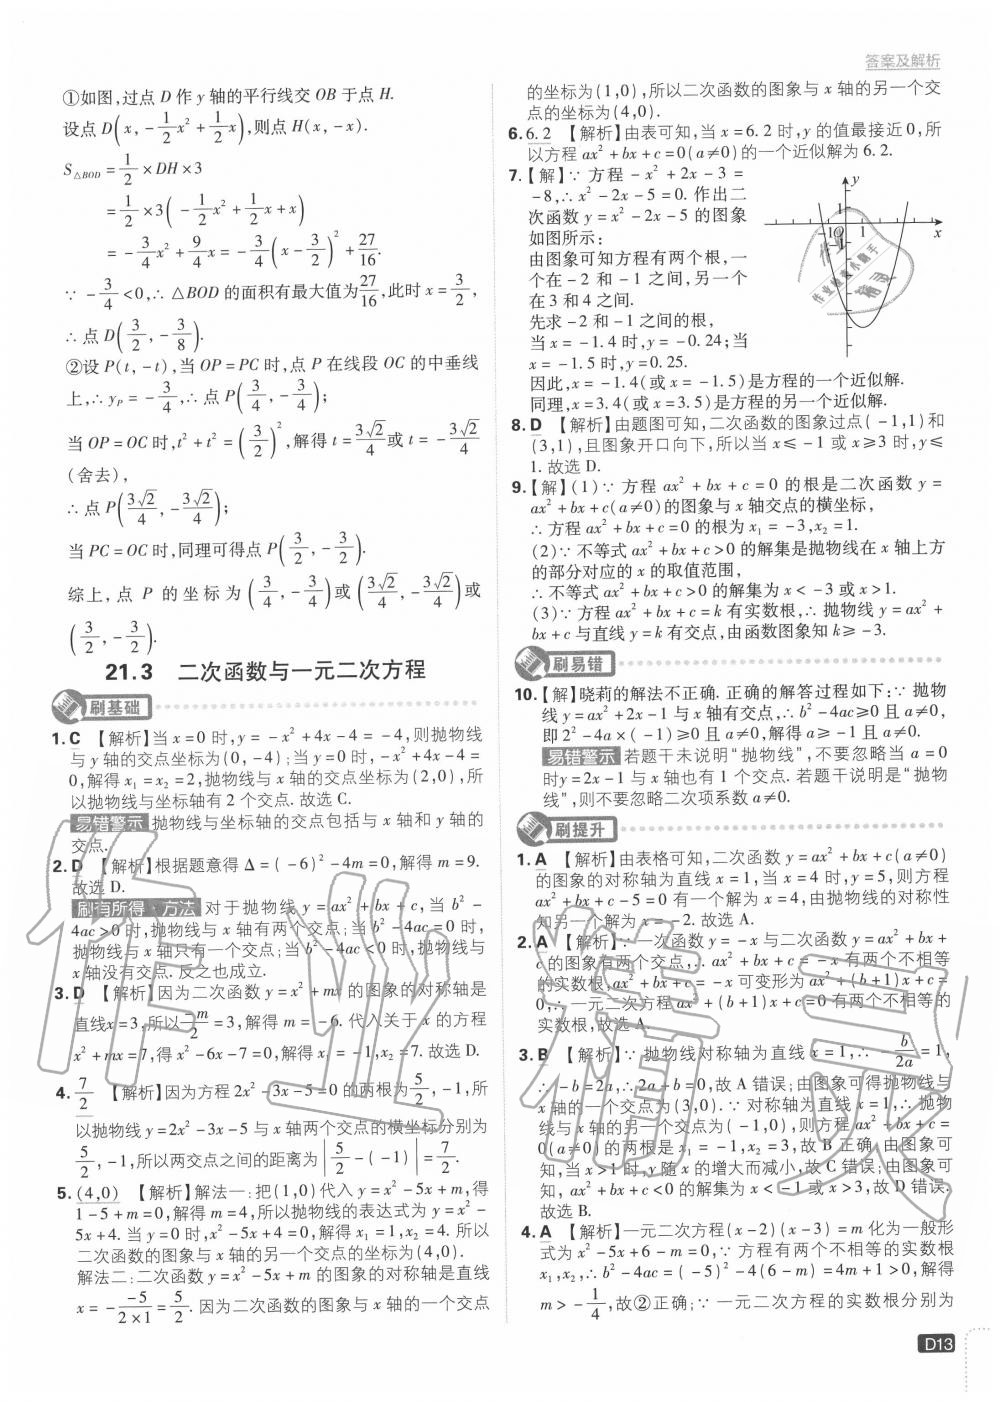 答案及解析
①如图,过点 D 作 y 轴的平行线交 OB 于点 H.
设点 D(x, -1/2x²+1/2x),则点 H(x, -x).
S△BOD = 1/2 × DH × 3
= 1/2 ×3(-1/2x²+1/2x+x)
= -3/4x²+9/4x = -3/4(x-3/2)²+27/16.
∵ -3/4<0,∴ △BOD 的面积有最大值为27/16,此时 x=3/2,
∴ 点 D(3/2, -3/8).
②设 P(t, -t),当 OP=PC 时,点 P 在线段 OC 的中垂线
上,∴ yP = -3/4,∴ 点 P(3/4, -3/4);
当 OP=OC 时,t²+t²=(3/2)²,解得 t=3√2/4或 t=-3√2/4
(舍去),
∴ 点 P(3√2/4, -3√2/4);
当 PC=OC 时,同理可得点 P(3/2, -3/2).
综上,点 P 的坐标为(3/4, -3/4)或(3√2/4, -3√2/4)或
(3/2, -3/2).
21.3 二次函数与一元二次方程
刷基础
1. C 【解析】当 x=0 时,y=-x²+4x-4=-4,则抛物线
与 y 轴的交点坐标为(0,-4);当 y=0 时,-x²+4x-4=
0,解得 x₁=x₂=2,抛物线与 x 轴的交点坐标为(2,0),所
以抛物线与坐标轴有 2 个交点.故选 C.
易错警示 抛物线与坐标轴的交点包括与 x 轴和 y 轴的
交点.
2. D 【解析】根据题意得 Δ=(-6)²-4m=0,解得 m=9.
故选 D.
刷有所得·方法 对于抛物线 y=ax²+bx+c,当 b²-
4ac>0 时,抛物线与 x 轴有两个交点;当 b²-4ac=0 时,
抛物线与 x 轴只有一个交点;当 b²-4ac<0 时,抛物线与
x 轴没有交点.反之也成立.
3. D 【解析】因为二次函数 y=x²+mx 的图象的对称轴是
直线x=3,所以-m/2=3,解得 m=-6.代入关于 x 的方程
x²+mx=7,得 x²-6x-7=0,解得 x₁=-1,x₂=7.故选 D.
4. 7/2 【解析】因为方程 2x²-3x-5=0 的两根为5/2,-1,所
以抛物线 y=2x²-3x-5 与 x 轴两个交点的横坐标分别为
5/2,-1,所以两交点之间的距离为|5/2-(-1)|=7/2.
5. (4,0) 【解析】解法一:把(1,0)代入 y=x²-5x+m,得
1-5+m=0,解得 m=4,所以抛物线的表达式为 y=x²-
5x+4.当 y=0 时,x²-5x+4=0,解得 x₁=1,x₂=4.所以
二次函数的图象与 x 轴的另一个交点的坐标为(4,0).
解法二:二次函数 y=x²-5x+m 的图象的对称轴是直线
x=--5/2×1=5/2.因为二次函数的图象与 x 轴的一个交点
的坐标为(1,0),所以二次函数的图象与 x 轴的另一个交
点的坐标为(4,0).
6. 6.2 【解析】由表可知,当 x=6.2 时,y 的值最接近 0,所
以方程 ax²+bx+c=0(a≠0)的一个近似解为 6.2.
7.【解】∵ 方程 -x²+2x-3=
-8,∴ x²-2x-5=0.作出二
次函数 y=x²-2x-5 的图象
如图所示:
由图象可知方程有两个根,一
个在 -2 和 -1 之间,另一个
在 3 和 4 之间.
先求 -2 和 -1 之间的根,
当 x=-1.4 时,y=-0.24;当
x=-1.5 时,y=0.25.
因此,x=-1.4(或 x=-1.5)是方程的一个近似解.
同理,x=3.4(或 x=3.5)是方程的另一个近似解.
y
1
-1O 1
x
8. D 【解析】由题图可知,二次函数的图象过点(-1,1)和
(3,1),且图象开口向下,所以当 x≤-1 或 x≥3 时,y≤
1.故选 D.
9.【解】(1)∵ 方程 ax²+bx+c=0 的根是二次函数 y=
ax²+bx+c(a≠0)的图象与 x 轴交点的横坐标,
∴ 方程 ax²+bx+c=0 的根为 x₁=-3,x₂=1.
(2)∵ 不等式 ax²+bx+c>0 的解集是抛物线在 x 轴上方
的部分对应的 x 的取值范围,
∴ 不等式 ax²+bx+c>0 的解集为 x<-3 或 x>1.
(3)∵ 方程 ax²+bx+c=k 有实数根,∴ 抛物线 y=ax²+
bx+c 与直线 y=k 有交点,由函数图象知 k≥-3.
刷易错
10.【解】晓莉的解法不正确.正确的解答过程如下:∵ 抛物
线 y=ax²+2x-1 与 x 轴有交点,∴ b²-4ac≥0 且 a≠0,
即 2²-4a×(-1)≥0 且 a≠0,解得 a≥-1 且 a≠0.
易错警示 若题干未说明“抛物线”,不要忽略当 a=0
时y=2x-1 与 x 轴也有 1 个交点.若题干说明是“抛物
线”,则不要忽略二次项系数 a≠0.
刷提升
1. A 【解析】由表格可知,二次函数 y=ax²+bx+c(a≠0)
的图象的对称轴为直线 x=1,当 x=4 时,y=5,则方程
ax²+bx+c-5=0 有一个解为 x=4,由抛物线的对称性
知另一个解为 x=-2.故选 A.
2. A 【解析】∵ 一次函数 y=-x 与二次函数 y=ax²+bx+
c 的图象有两个交点,∴ ax²+bx+c=-x 有两个不相等
的实数根,ax²+bx+c=-x 可变形为 ax²+(b+1)x+c=
0,∴ 一元二次方程 ax²+(b+1)x+c=0 有两个不相等的
实数根,故选 A.
3. B 【解析】∵ 抛物线对称轴为直线 x=1,∴ -b/2a=1,
∴ -b=2a,∴ 2a+b=0,故 A 错误;由图象可得抛物线与
x 轴的一个交点为(3,0).∵ 对称轴为直线 x=1,∴ 抛物
线与 x 轴的另一个交点为(-1,0),则方程 ax²+bx+c=
0(a≠0)的两根是 x₁=-1,x₂=3,故 B 正确;由图象可
知,当 x>1 时,y 随 x 的增大而减小,故 C 错误;由图象可
知,ax²+bx+c<0 的解集为 x<-1 或 x>3,故 D 错误.
故选 B.
4. A 【解析】一元二次方程(x-2)(x-3)=m 化为一般形
式为 x²-5x+6-m=0,∵ 方程有两个不相等的实数根
x₁,x₂,∴ b²-4ac=(-5)²-4(6-m)=4m+1>0,解得
m>-1/4,故②正确;∵ 一元二次方程的实数根分别为
D13
作业精灵